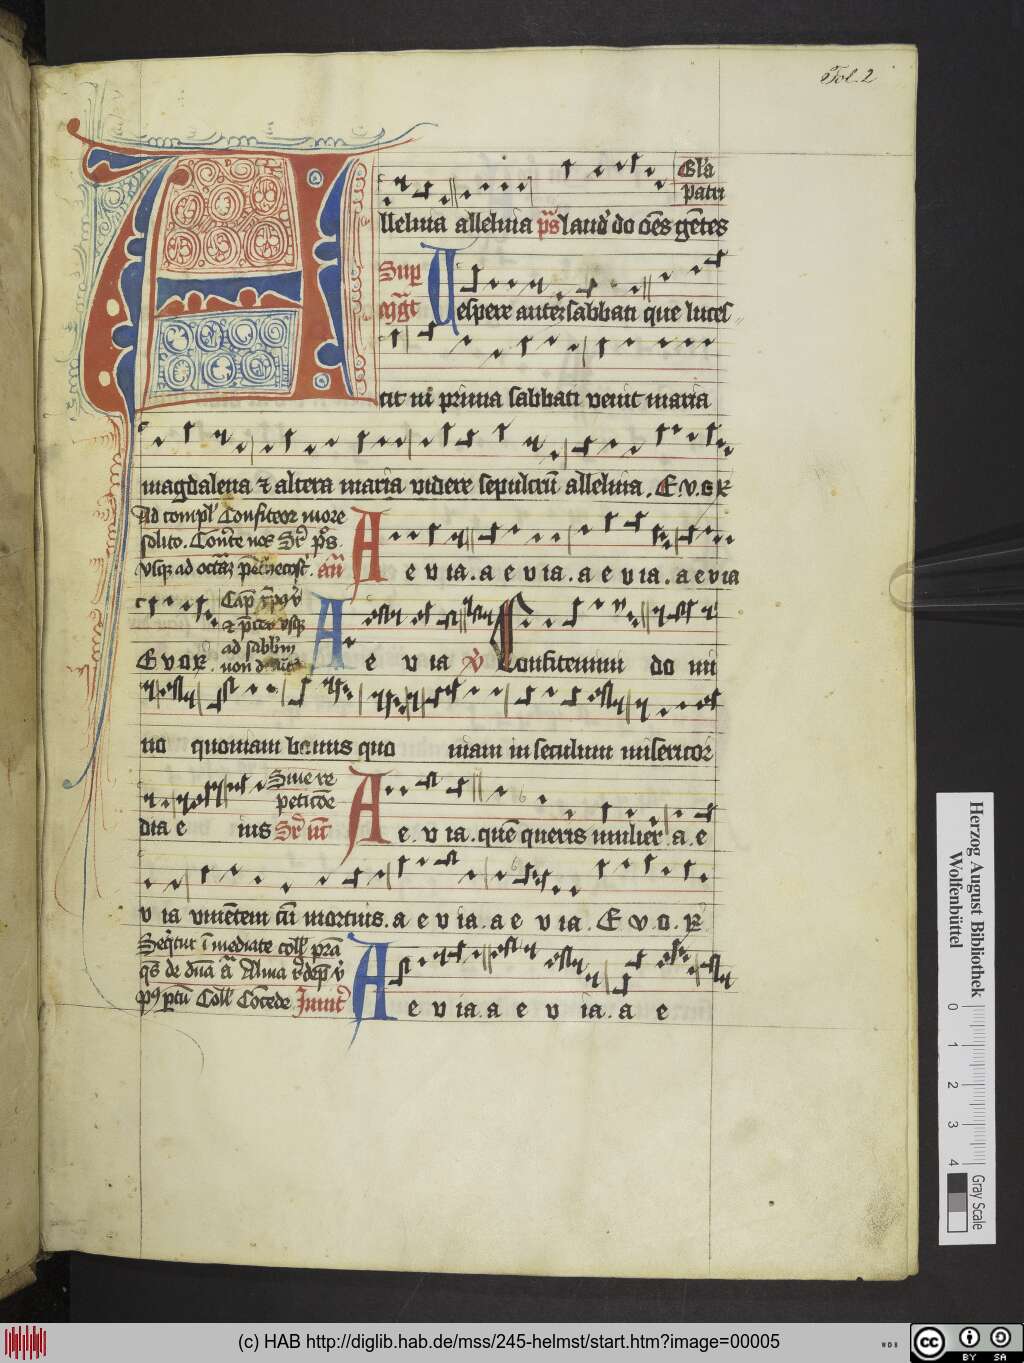 Fol. 2
Gl'a
Patri
lleluia alleluia ps laud' do̅ o̅es ge̅tes
Sup
mg̅t
Vespere aute̅ sabbati que luces
cit in prima sabbati venit maria
magdalena & altera maria videre sepulcru̅ alleluia. E.v.o.
Ad compl' Confiteor more
solito. Conu̅te nos
vsq; ad octa̅s pe̅thecost'. an̅
A e v ia. a e v ia. a e v ia. a e v ia
E v o
ad sabb'm
A e v ia v̕ Confitemini do mi
no quoniam bonus quo niam in seculum misericor
Siue re
petic̅oe
dia e ius
A e. v ia. que̅ queris mulier a. e
v ia viue̅te̅ cu̅ mortuis. a e v ia. a e v ia. E v. o.
Seq̅tur i̅mediate coll' pra̅
Coll' Co̅cede Inuit'
A e v ia. a e v ia. a e
Herzog August Bibliothek
Wolfenbüttel
0 1 2 3 4
Gray Scale
(c) HAB http://diglib.hab.de/mss/245-helmst/start.htm?image=00005
WDB
cc BY SA